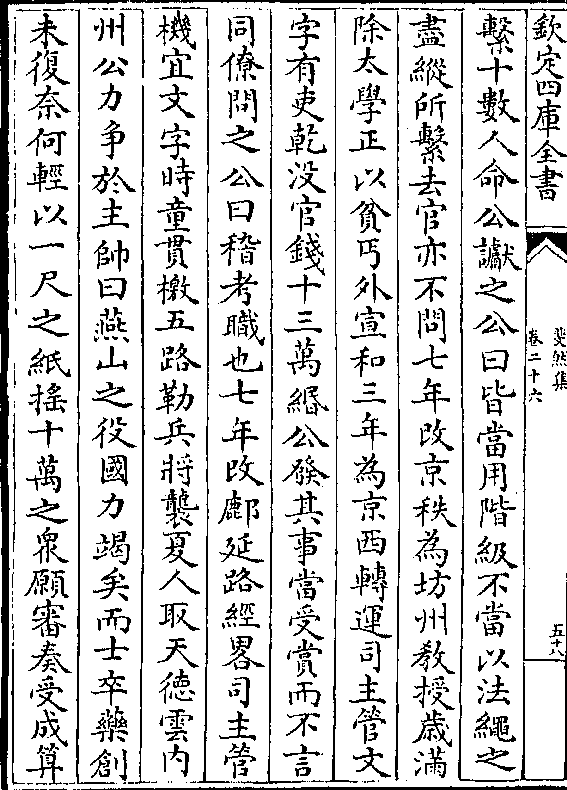 欽定四庫全書
斐然集
卷二十六
五十八
繫十數人命公讞之公曰皆當用階級不當以法繩之
盡縱所繫去官亦不問七年改京秩為坊州教授歲滿
除太學正以貧丐外宣和三年為京西轉運司主管文
字有吏乾没官錢十三萬緡公發其事當受賞而不言
同僚問之公曰稽考職也七年改鄜延路經畧司主管
機宜文字時童貫檄五路勒兵將襲夏人取天德雲内
州公力争於主帥曰燕山之役國力竭矣而士卒藥創
未復奈何輕以一尺之紙揺十萬之衆願審奏受成算